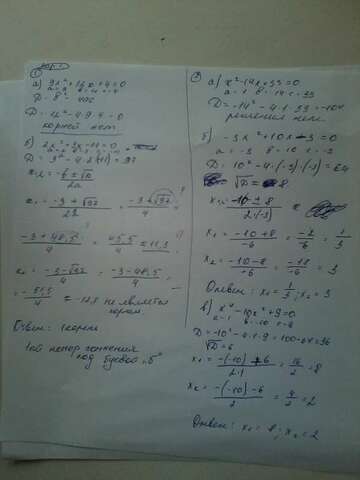 вар. 1
①
а) 9x² + 12x + 4 = 0
D = b² - 4ac
D = 12² - 4·9·4 = 0
корней нет.
б) 2x² + 3x - 11 = 0
D = 3² - 4·2·(-11) = 97
x₁,₂ = -b ± √D / 2a
x₁ = -3 + √97 / 2·2 = -3 + √97 / 4
-3 + 48,5 / 4 = 45,5 / 4 = 11,3
x₂ = -3 - √97 / 4 = -3 - 48,5 / 4 =
= -51,5 / 4 = -12,8 не является
корнем.
Ответ:
под буквой „б"
②
а) x² - 14x + 33 = 0
D = -14² - 4·1·33 = -104
решения нет.
б) -3x² + 10x - 3 = 0
a = -3 b = 10 c = -3
D = 10² - 4·(-3)·(-3) = 64
√D = 8
x₁,₂ = -10 ± 8 / 2·(-3)
x₁ = -10 + 8 / -6 = -2 / -6 = 1 / 3
x₂ = -10 - 8 / -6 = -18 / -6 = 3
Ответ: x₁ = 1/3; x₂ = 3
в) x⁴ - 10x² + 9 = 0
a = 1 b = -10 c = 9
D = -10² - 4·1·9 = 100 - 64 = 36
√D = 6
x₁ = -(-10) + 6 / 2·1 = 16 / 2 = 8
x₂ = -(-10) - 6 / 2 = 4 / 2 = 2
Ответ: x₁ = 8; x₂ = 2